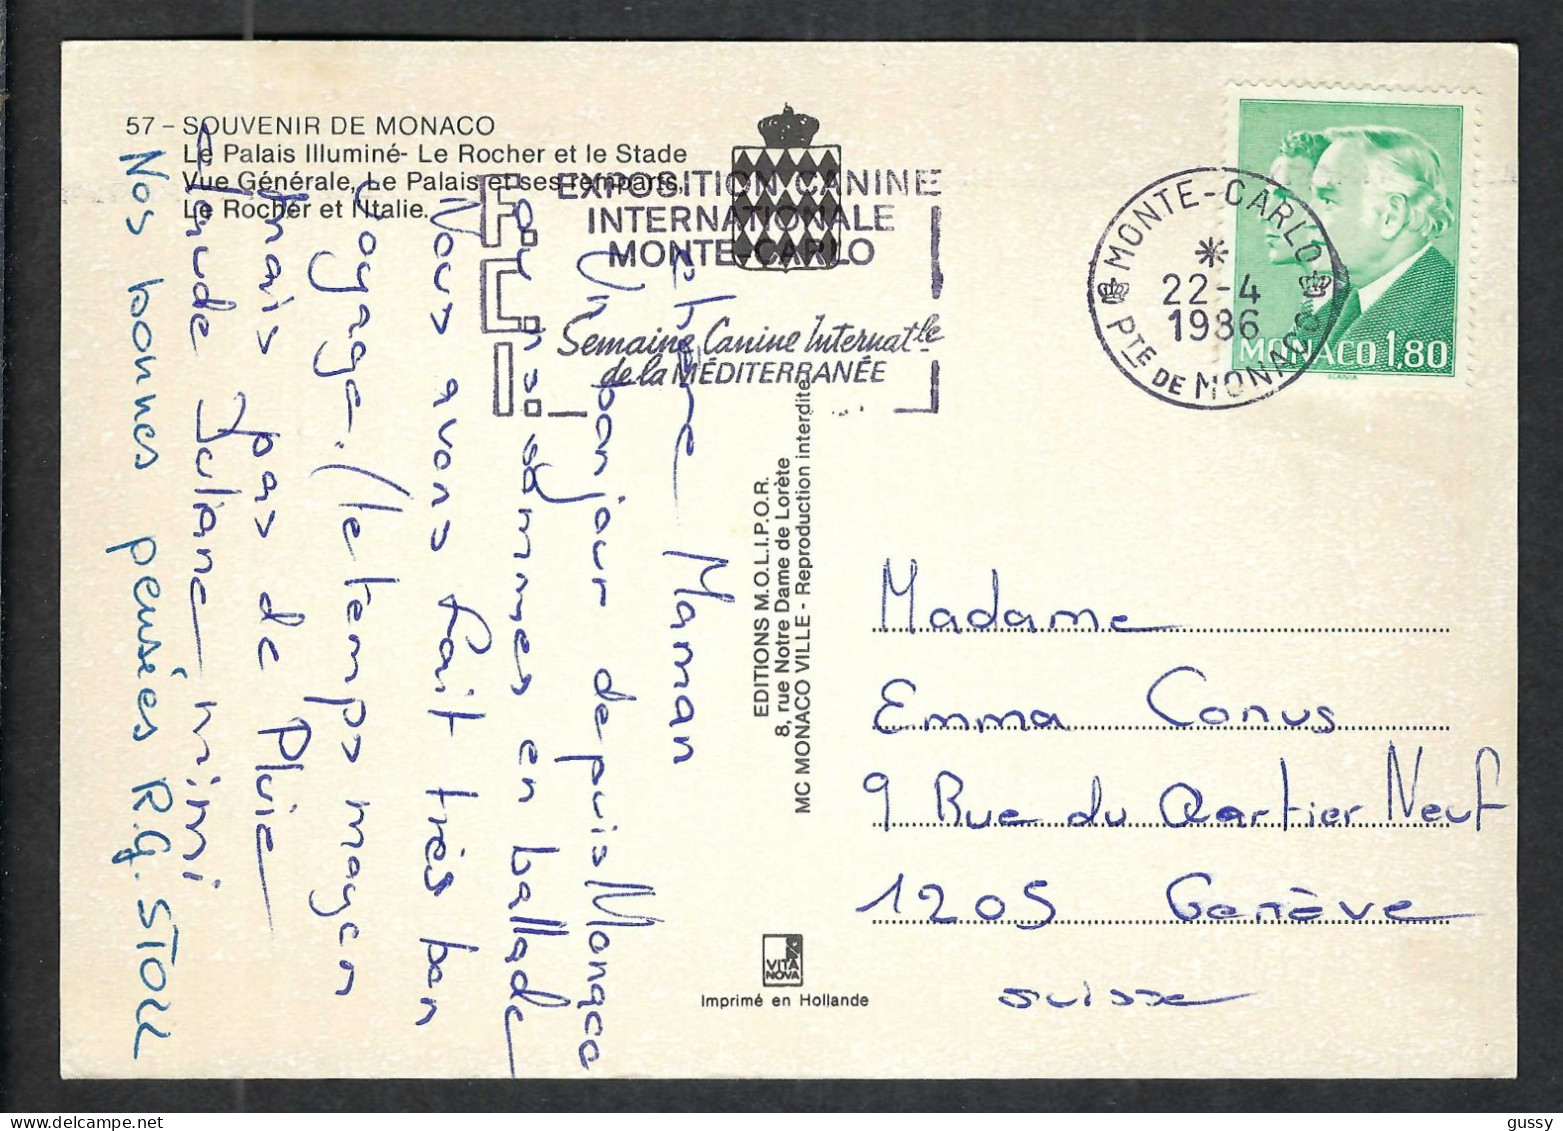 57 - SOUVENIR DE MONACO
Le Palais Illuminé- Le Rocher et le Stade
Vue Générale, Le Palais et ses remparts,
Le Rocher et l'Italie.
EXPOSITION CANINE
INTERNATIONALE
MONTE-CARLO
Semaine Canine Internatle
de la MÉDITERRANÉE
MONTE-CARLO
22-4
1986
PTE DE MONACO
MONACO 1,80
SLANIA
chère Maman
Un bonjour depuis Monaco
où nous sommes en ballade
Nous avons fait très bon
voyage. (le temps moyen
mais pas de Pluie
claude Juliane mimi
Nos bonnes pensées R.G. STOLL
EDITIONS M.O.L.I.P.O.R.
8, rue Notre Dame de Lorète
MC MONACO VILLE - Reproduction interdite
VITA
NOVA
Imprimé en Hollande
Madame
Emma Conus
9 Rue du Qartier Neuf
1205 Genève
suisse
gussy